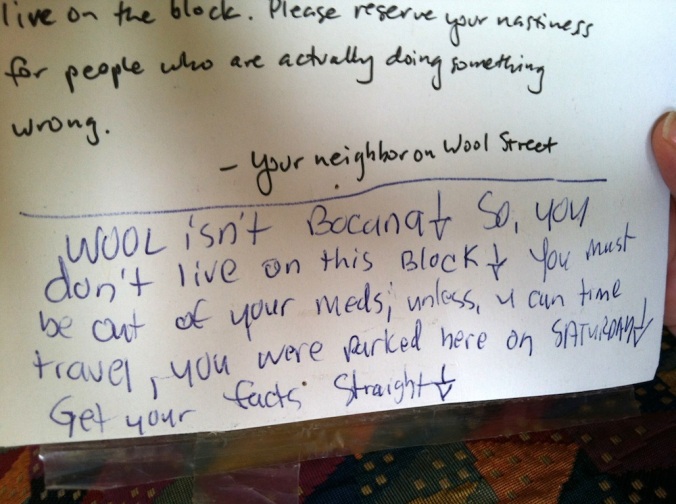 live on the block. Please reserve your nastiness
for people who are actually doing something
wrong.
- Your neighbor on Wool Street
WOOL isn't Bocana! So, you
don't live on this BLOCK! You must
be out of your meds; unless, u can time
travel, you were parked here on SATURDAY!
Get your facts straight!